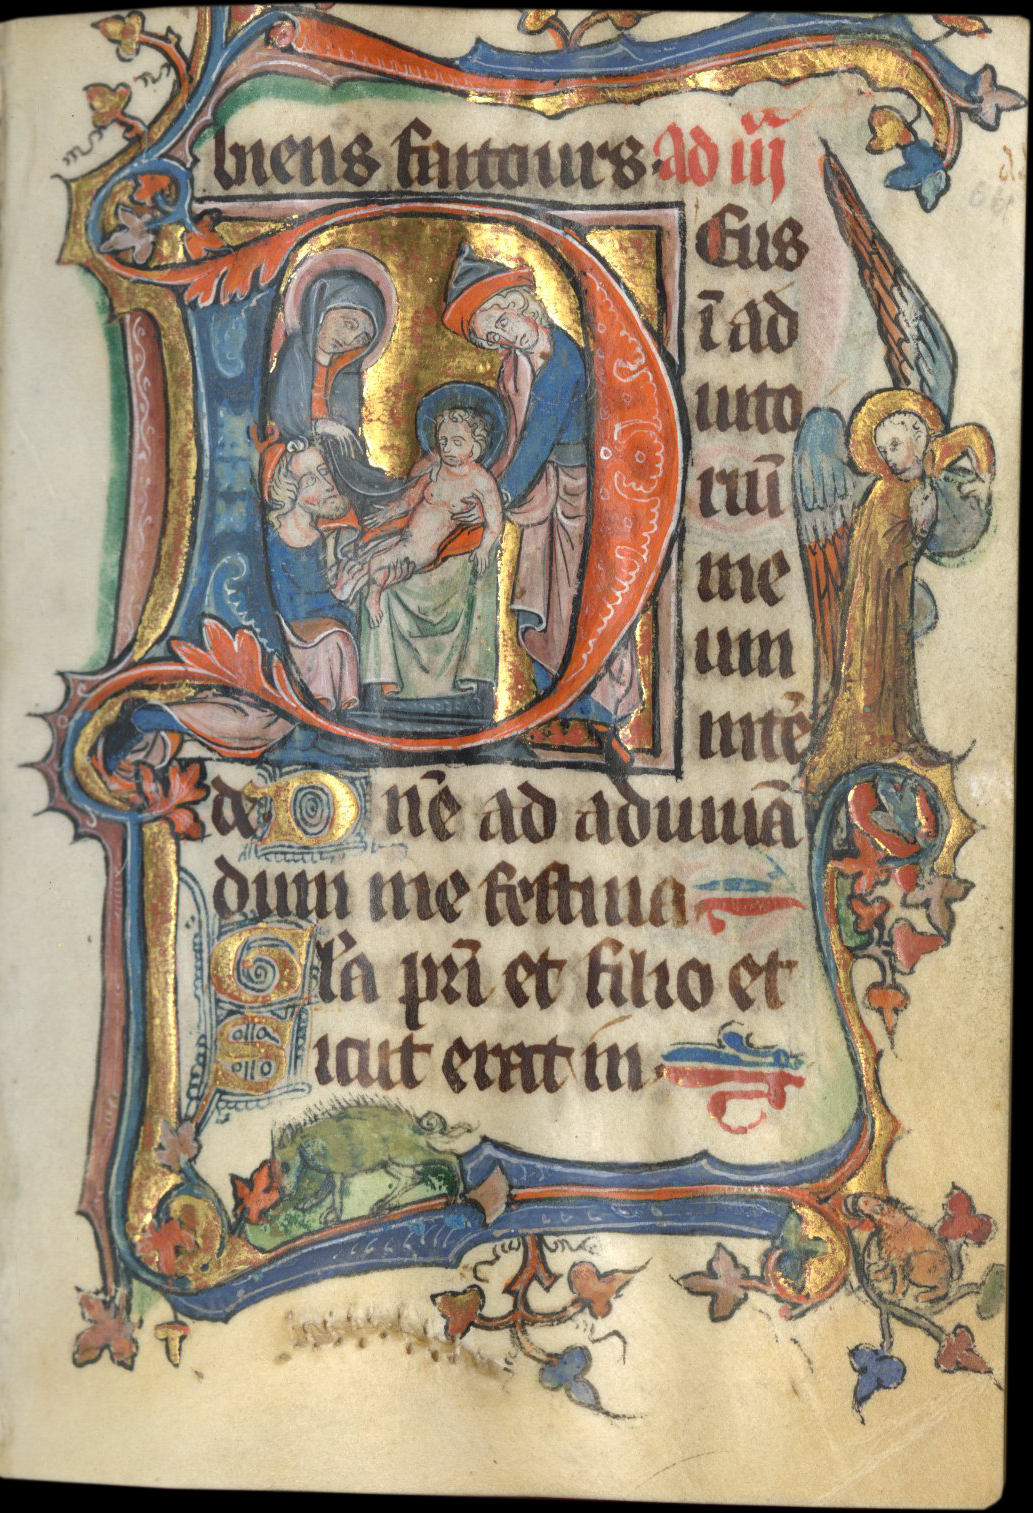 biens sautours. Ad iij
Eus
ī ad
iuto
riū
me
um
intē
de Dn̄e ad adiuuā
dum me festina
Gl'a pr̄i et filio et
Sicut erat in